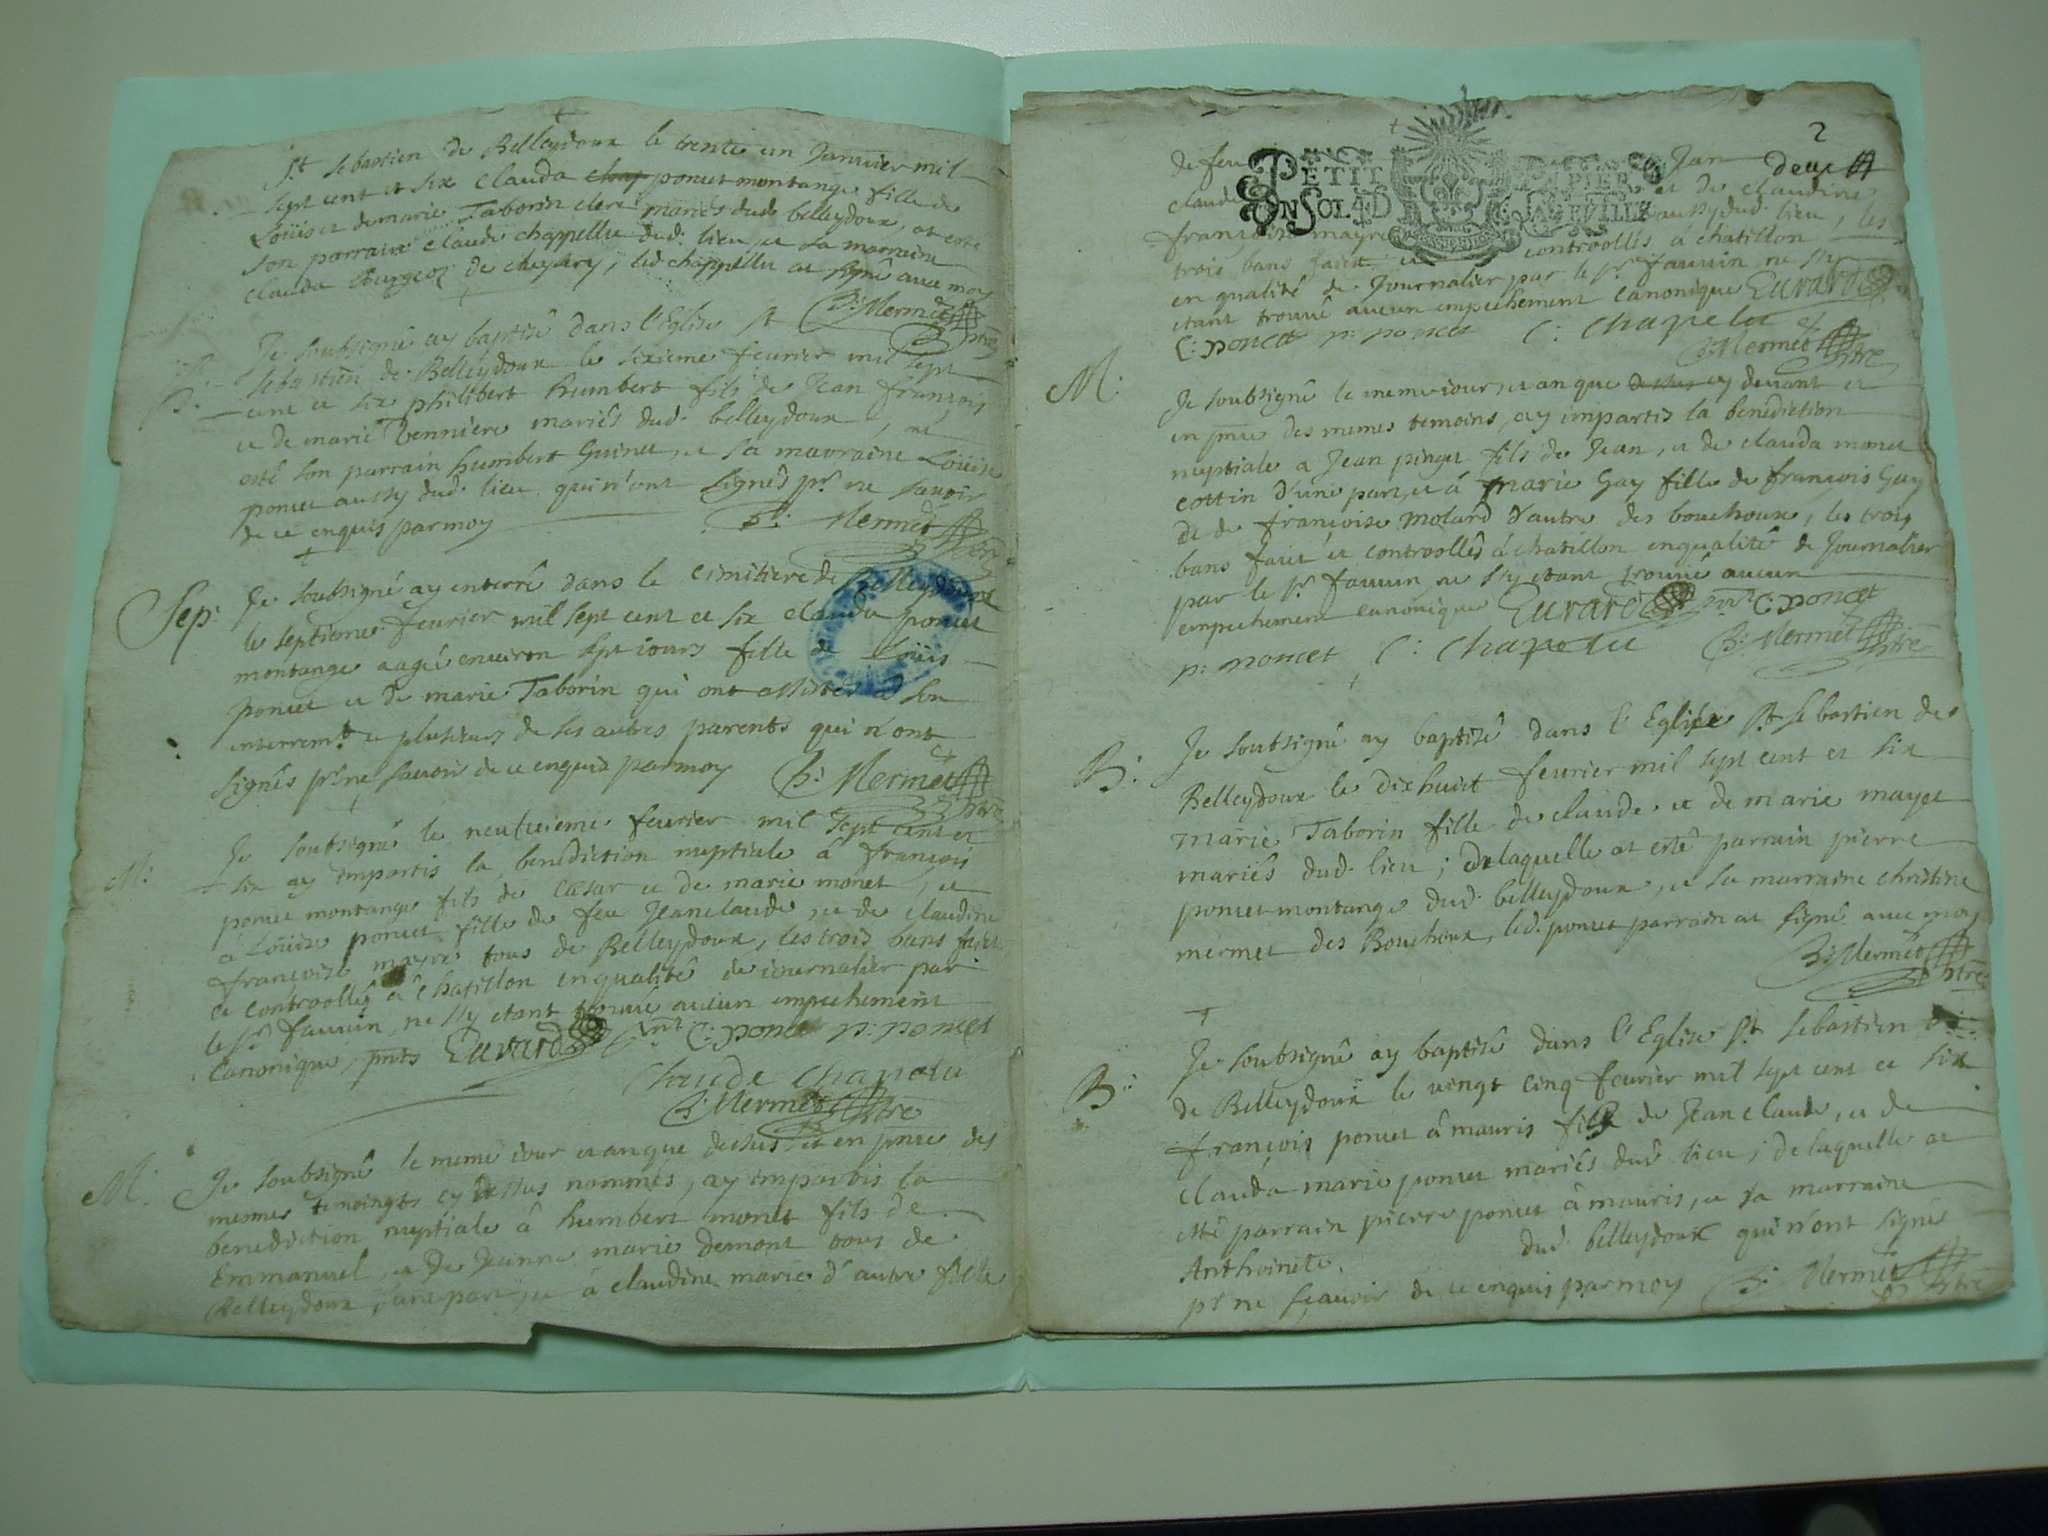 St sebastien de Belleydoux le trente un Janvier mil
sept cent et six clauda chap poncet montange fille de
Loüis et de marie Taborin mariés dud. belleydoux, at esté
son parrain claude chappellu dud. lieu, et sa marraine
clauda Burgeoz de cheyzery, led chappellu at signé avec moy
B: Mermet
ptre
B.
Je soubsigné ay baptisé dans l'Eglise St
sebastien de Belleydoux le sixieme fevrier mil sept
cent et six philibert humbert fils de Jean françois
et de marie vennière mariés dud. belleydoux, at
esté son parrain humbert Guinet, et sa marraine Loüise
poncet aussy dud. lieu qui n'ont signés pr. ne savoir
de ce enquis par moy
B: Mermet
ptre
Sep:
Je soubsigné ay enterré dans le cimitiere de Belleydoux
le septieme fevrier mil sept cent et six clauda poncet
montange aagée environ sept iours fille de Loüis
poncet et de marie Taborin qui ont assistés a son
enterremt. et plusieurs de ses autres parents qui n'ont
signés pr. ne savoir de ce enquis par moy B: Mermet
ptre
M:
Je soubsigné le neufvieme fevrier mil sept cent et
six ay impartis la benediction nuptiale â françois
poncet montange fils de Cæsar et de marie monet, et
â Loüise poncet fille de feu Jeanclaude, et de claudine
françoise mayre tous de Belleydoux, les trois bans faict
et controollés â châtillon en qualité de iournalier par
le sr. fauvin, ne s'y etant trouvé aucun empechement
canonique, pnts Euvrard pnt C: poncet p: poncet
claude chapelu
B: Mermet ptre
M.
Je soubsigné le meme iour et an que dessus et en pnce des
mesmes temoingts cy dessus nommés, ay impartis la
benediction nuptiale â humbert monet fils de
Emmanuel, et de Jeanne marie demont tous de
Belleydoux d'une part, et â claudine marie d'autre fille
2
de feu Jan deux
claude et de claudine
PETIT PAPIER
UN SOL 4 D LA FEUILLE
françoise mayre aussy dud. lieu, les
trois bans faict et controollés â chatillon
en qualité de Journalier par le sr. fauvin ne s'y
etant trouvé aucun empechement canonique Euvrard
C: poncet p: poncet C: Chapelu
B: Mermet ptre
M:
Je soubsigné le meme iour, et an que dessus cy devant et
en pnce des memes temoins, ay impartis la benediction
nuptiale a Jean pinget fils de Jean, et de clauda monet
cottin d'une part, et â marie Gay fille de françois Gay
et de françoise molard d'autre des bouchoux, les trois
bans faict et controollés â chatillon en qualité de Journalier
par le sr. fauvin ne s'y etant trouvé aucun
empechement canonique Euvrard pnt C: poncet
p: poncet C: Chapelu B: Mermet ptre
B:
Je soubsigné ay baptisé dans l'Eglise St sebastien de
Belleydoux le dixhuict fevrier mil sept cent et six
marie Taborin fille de claude et de marie mayet
mariés dud. lieu; de laquelle at esté parrain pierre
poncet montange dud. belleydoux, et sa marraine christine
mermet des Bouchoux, led. poncet parrain at signé avec moy
B: Mermet
ptre
B:
Je soubsigné ay baptisé dans l'Eglise St sebastien
de Belleydoux le vingt cinq fevrier mil sept cent et six
françois poncet â mauris fils de Jean claude, et de
clauda marie poncet mariés dud. lieu; de laquelle at
esté parrain pierre poncet â mauris, et sa marraine
Anthoinete dud. belleydoux qui n'ont signé
pr. ne sçavoir de ce enquis par moy B: Mermet
ptre